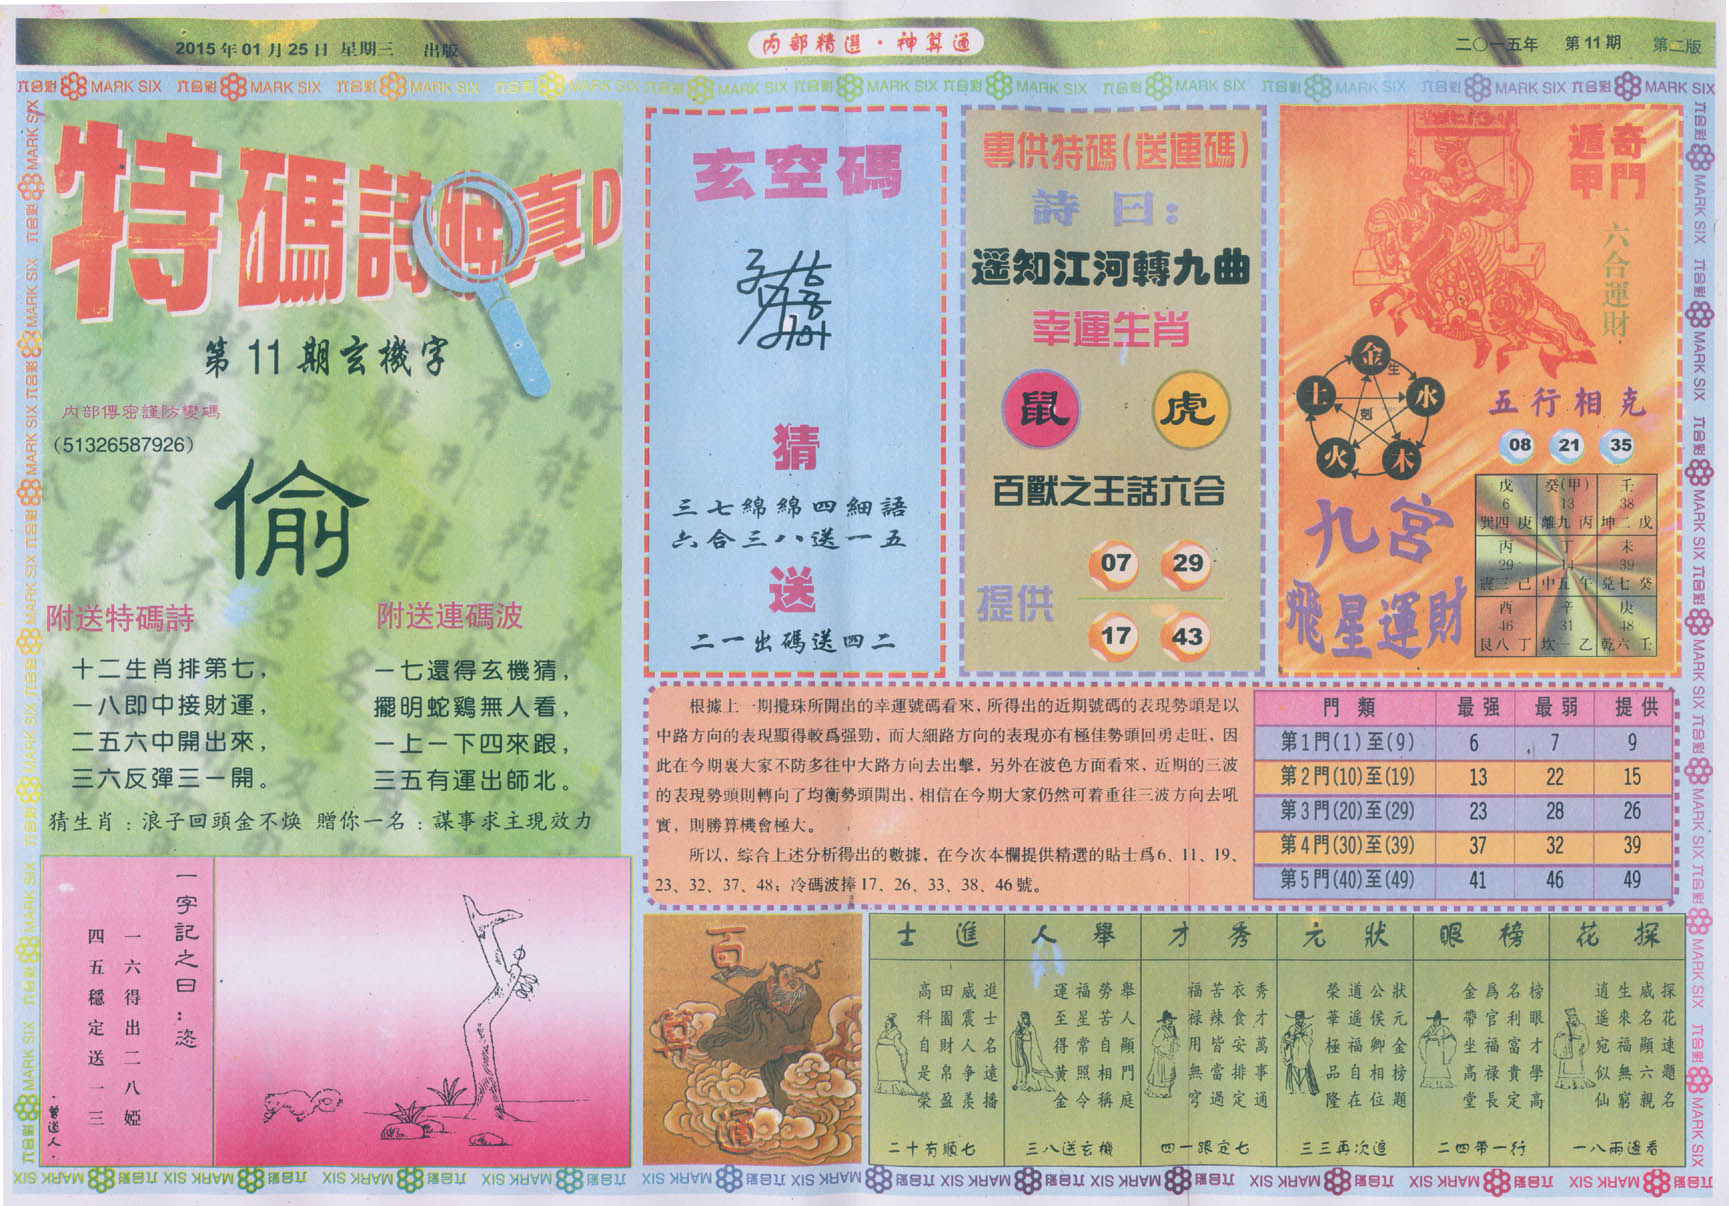 2015年01月25日 星期三 出版
内部精選·神算通
二〇一五年 第11期 第二版
六合彩 MARK SIX
特碼詩
真D
第11期玄機字
内部傳密謹防變碼
(51326587926)
偷
附送特碼詩
十二生肖排第七，
一八即中接財運，
二五六中開出來，
三六反彈三一開。
附送連碼波
一七還得玄機猜，
擺明蛇鷄無人看，
一上一下四來跟，
三五有運出師北。
猜生肖：浪子回頭金不焕 贈你一名：謀事求主現效力
一字記之曰：恣
一六得出二八婭
四五穩定送一三
·曾道人·
玄空碼
猜
三七綿綿四細語
六合三八送一五
送
二一出碼送四二
專供特碼(送連碼)
詩曰：
遥知江河轉九曲
幸運生肖
鼠 虎
百獸之王話六合
提供
07 29
17 43
奇門
遁甲
六合運財
金 生 水 木 火 土 剋
五行相克
08 21 35
九宫
飛星運財
戊 癸(甲) 壬
6 13 38
巽四 庚 離九 丙 坤二 戊
丙 丁 未
29 14 39
震三 己 中五 午 兑七 癸
酉 辛 庚
46 31 48
艮八 丁 坎一 乙 乾六 壬
根據上一期攪珠所開出的幸運號碼看來，所得出的近期號碼的表現勢頭是以
中路方向的表現顯得較爲强勁，而大細路方向的表現亦有極佳勢頭回勇走旺，因
此在今期裏大家不防多往中大路方向去出擊，另外在波色方面看來，近期的三波
的表現勢頭則轉向了均衡勢頭開出，相信在今期大家仍然可着重往三波方向去吼
實，則勝算機會極大。
所以，綜合上述分析得出的數據，在今次本欄提供精選的貼士爲6、11、19、
23、32、37、48；冷碼波捧17、26、33、38、46號。
門類 最强 最弱 提供
第1門(1)至(9) 6 7 9
第2門(10)至(19) 13 22 15
第3門(20)至(29) 23 28 26
第4門(30)至(39) 37 32 39
第5門(40)至(49) 41 46 49
百
運
進士
進士名遠播
威震人争羨
田園財帛盈
高科自是榮
二十有順七
舉人
舉人顯門庭
勞苦自相稱
福星常照令
運至得黄金
三八送玄機
秀才
秀才萬事通
衣食安排定
苦辣皆當過
福禄用無窮
四一跟定七
狀元
狀元金榜題
公侯卿相位
道遥福自在
榮華極品隆
三三再次追
榜眼
榜眼才學高
名利富貴定
爲官福禄長
金帶坐高堂
二四帶一行
探花
探花速題名
威名顯六親
生來福無窮
逍遥宛似仙
一八兩邊看